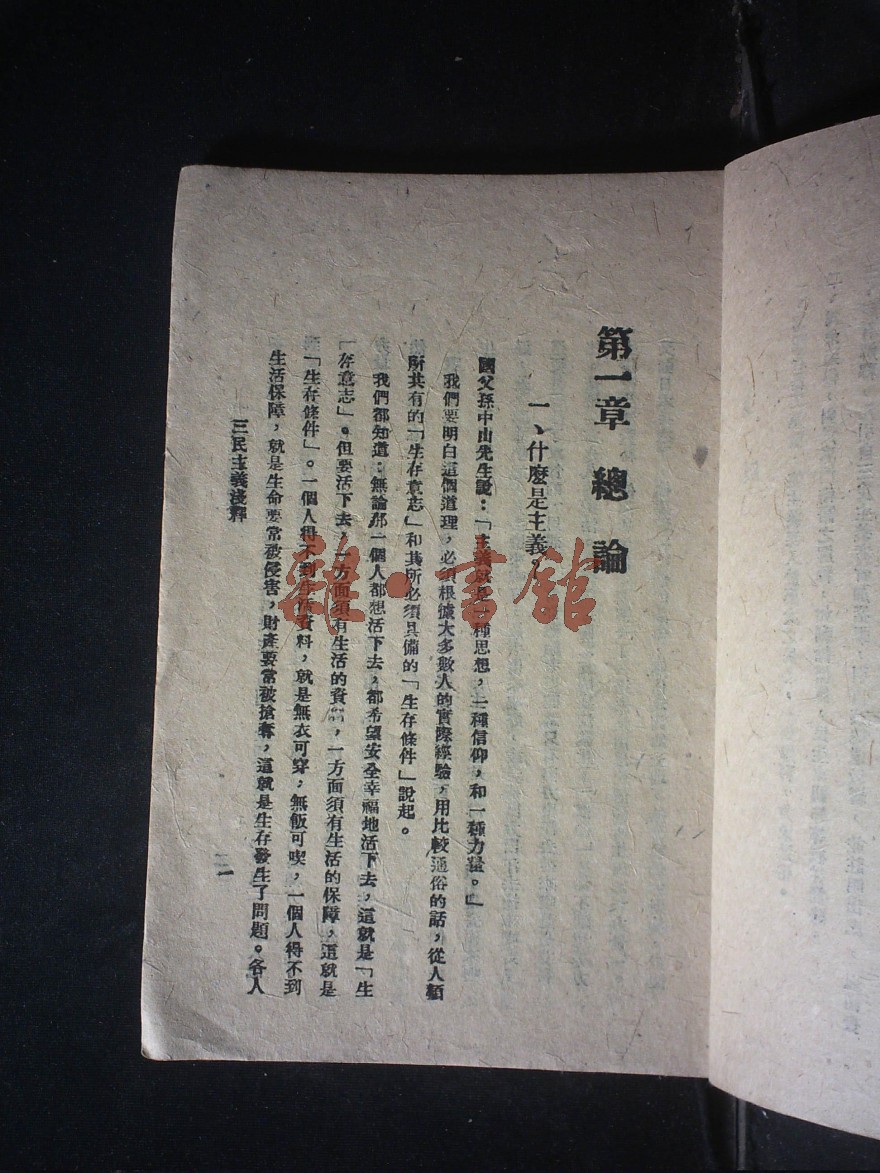 第一章 總論
一、什麼是主義。
國父孫中山先生說：「主義就是一種思想，一種信仰，和一種力量。」
我們要明白這個道理，必須根據大多數人的實際經驗，用比較通俗的話，從人類
所共有的「生存意志」和其所必須具備的「生存條件」說起。
我們都知道：無論那一個人都想活下去，都希望安全幸福地活下去，這就是「生
存意志」。但要活下去，一方面須有生活的資，一方面須有生活的保障，這就是
「生存條件」。一個人得不到生活資料，就是無衣可穿，無飯可喫，一個人得不到
生活保障，就是生命要常被侵害，財產要常被搶奪，這就是生存發生了問題。各人
三民主義淺釋
雜·書館